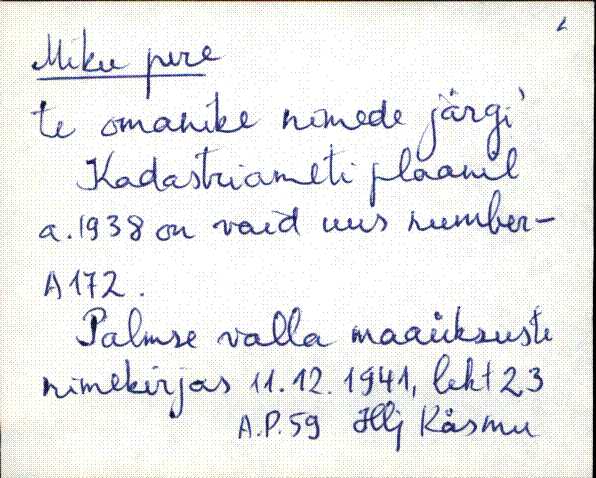 Miku pere
te omanike nimede järgi
Kadastriameti plaanil
a. 1938 on vaid uus number-
A 172.
Palmse valla maaüksuste
nimekirjas 11.12.1941, leht 23
A.P. 59 Hlj Käsmu